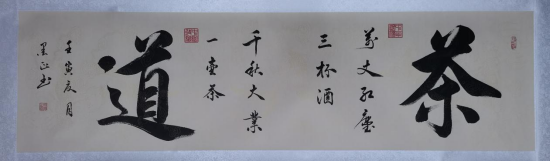 茶
万丈红尘
三杯酒
千秋大业
一壶茶
道
壬寅夏月
墨正书